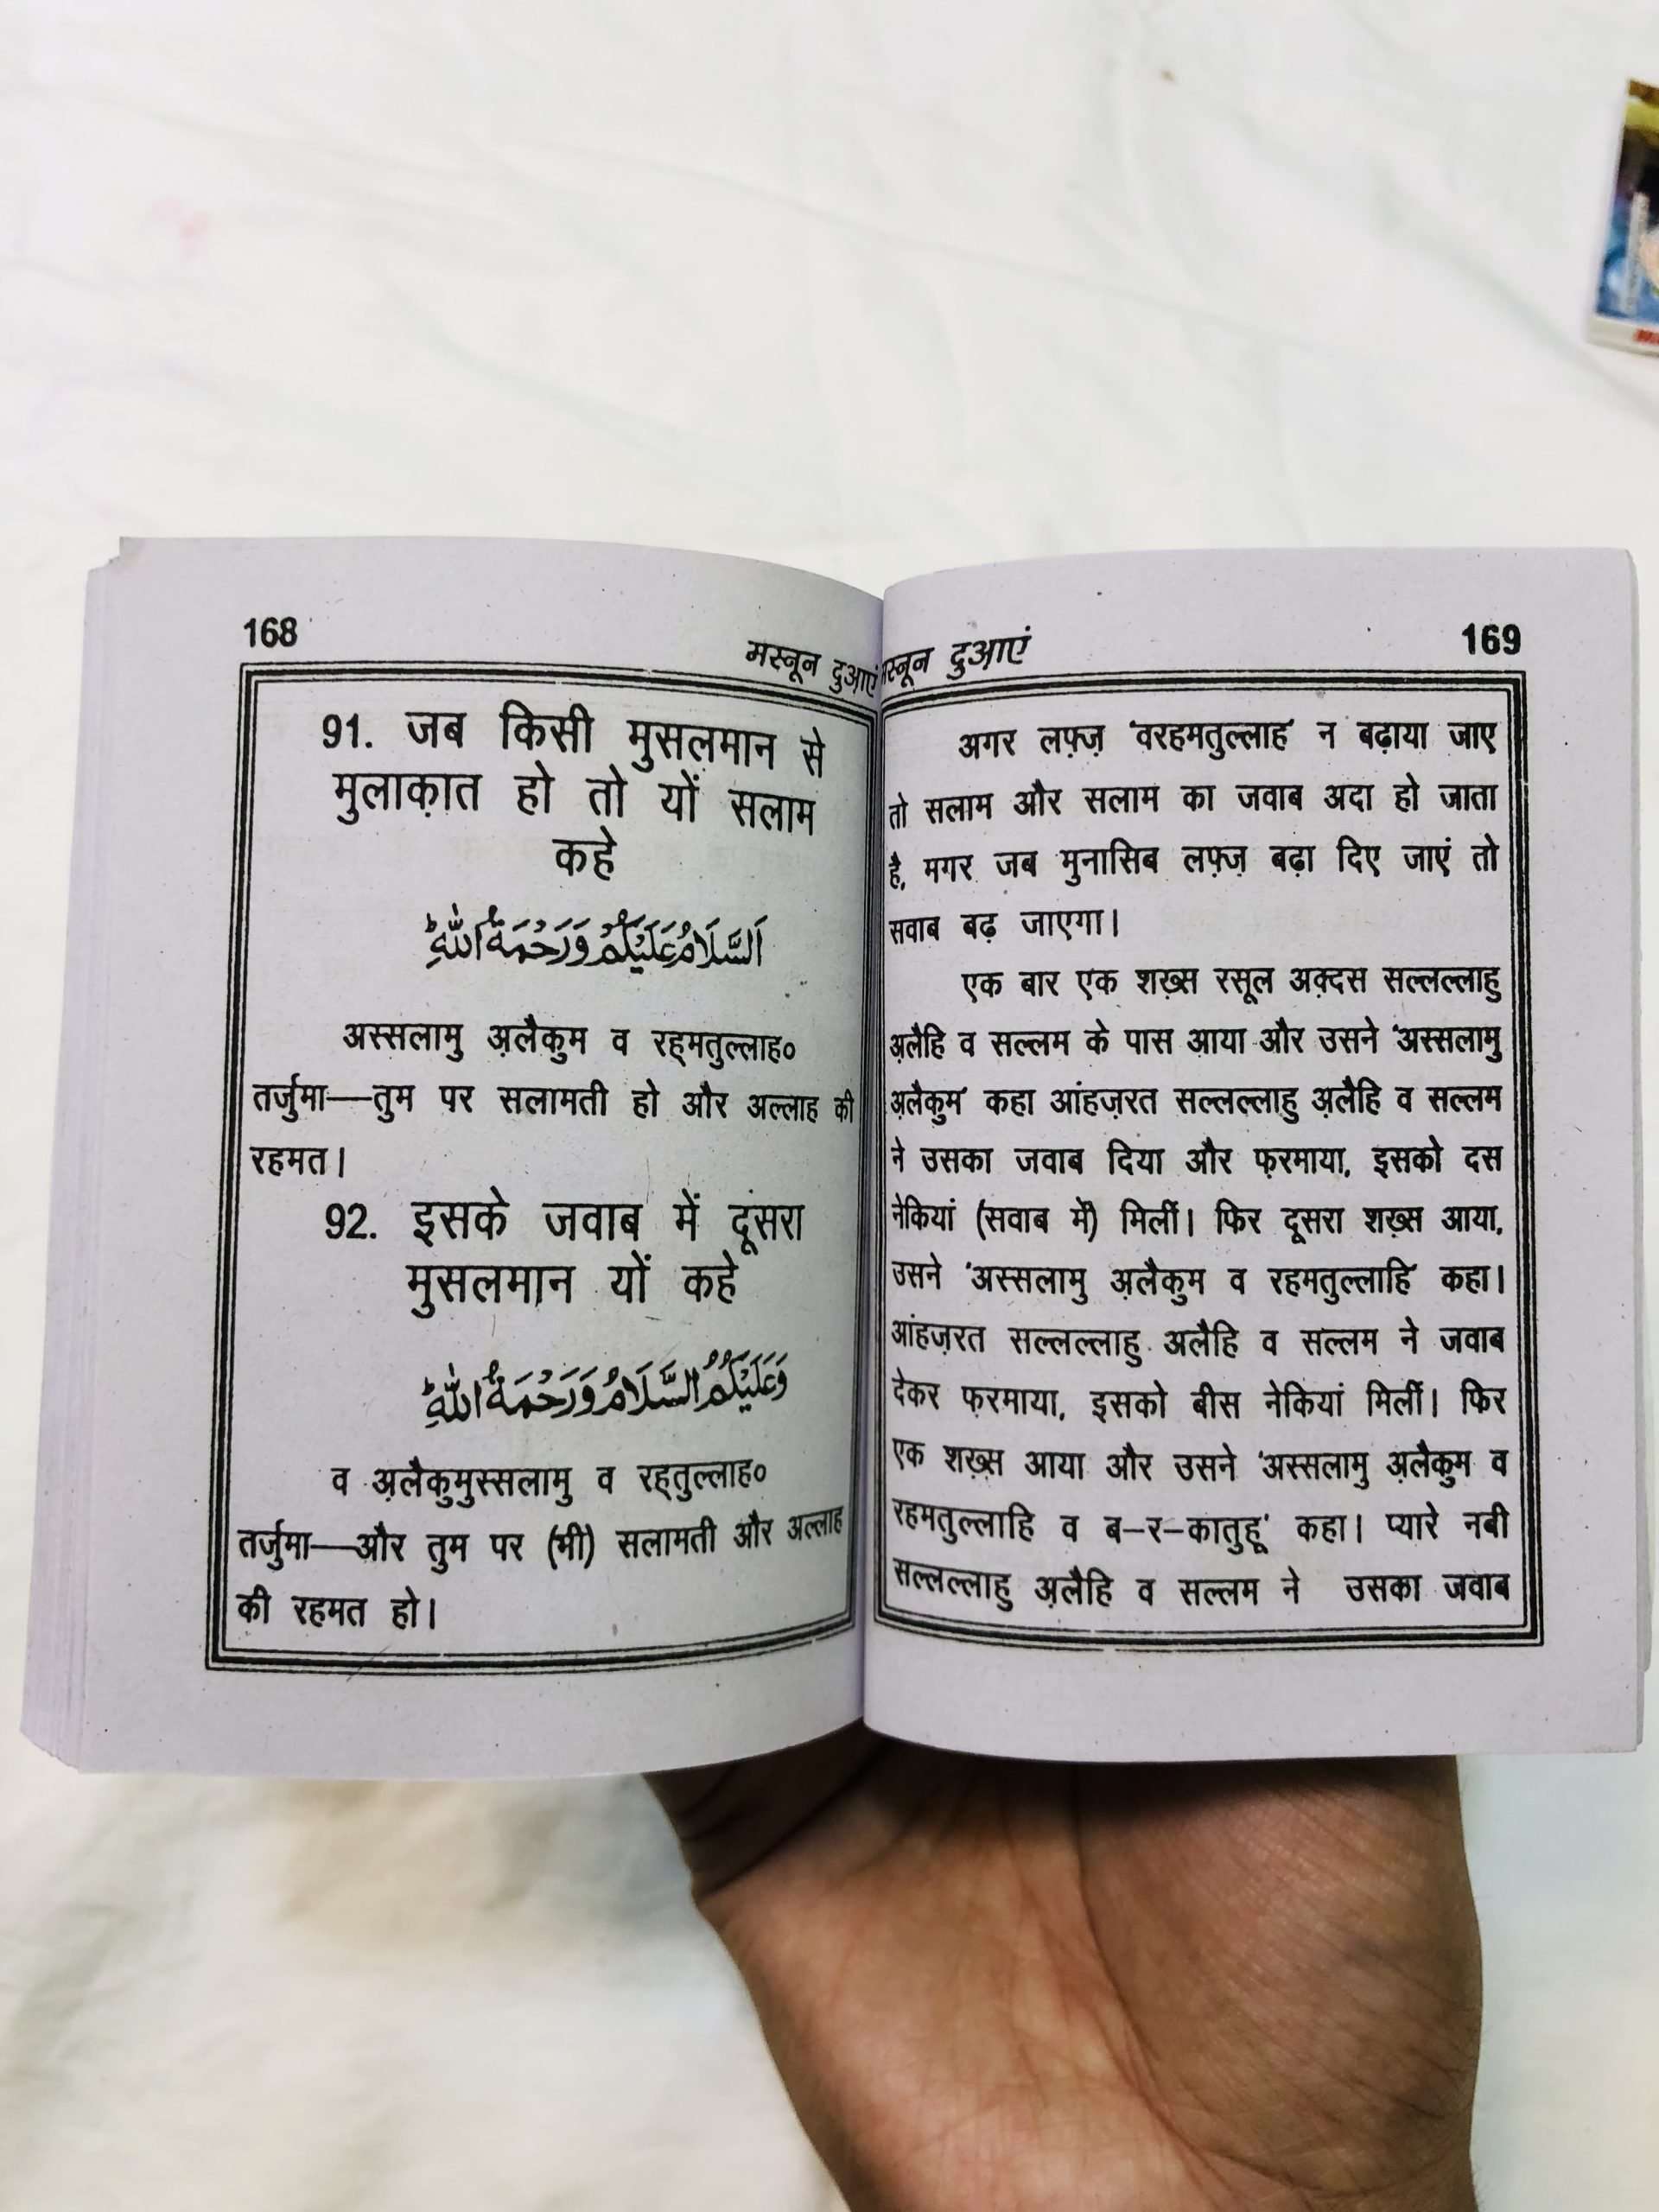 168
मस्नून दुआएं
91. जब किसी मुसलमान से
मुलाक़ात हो तो यों सलाम
कहे
اَلسَّلَامُ عَلَيْكُمْ وَرَحْمَةُ اللّٰهِ ؕ
अस्सलामु अ़लैकुम व रह़्मतुल्लाह०
तर्जुमा—तुम पर सलामती हो और अल्लाह की
रहमत।
92. इसके जवाब में दूसरा
मुसलमान यों कहे
وَعَلَيْكُمُ السَّلَامُ وَرَحْمَةُ اللّٰهِ ؕ
व अ़लैकुमुस्सलामु व रह़्तुल्लाह०
तर्जुमा—और तुम पर (भी) सलामती और अल्लाह
की रहमत हो।
मस्नून दुआएं
169
अगर लफ़्ज़ 'वरहमतुल्लाह' न बढ़ाया जाए
तो सलाम और सलाम का जवाब अदा हो जाता
है, मगर जब मुनासिब लफ़्ज़ बढ़ा दिए जाएं तो
सवाब बढ़ जाएगा।
एक बार एक शख़्स रसूल अक़्दस सल्लल्लाहु
अ़लैहि व सल्लम के पास आया और उसने 'अस्सलामु
अ़लैकुम' कहा आंहज़रत सल्लल्लाहु अ़लैहि व सल्लम
ने उसका जवाब दिया और फ़रमाया, इसको दस
नेकियां (सवाब में) मिलीं। फिर दूसरा शख़्स आया,
उसने 'अस्सलामु अ़लैकुम व रहमतुल्लाहि' कहा।
आंहज़रत सल्लल्लाहु अलैहि व सल्लम ने जवाब
देकर फ़रमाया, इसको बीस नेकियां मिलीं। फिर
एक शख़्स आया और उसने 'अस्सलामु अ़लैकुम व
रहमतुल्लाहि व ब-र-कातुहू' कहा। प्यारे नबी
सल्लल्लाहु अ़लैहि व सल्लम ने उसका जवाब